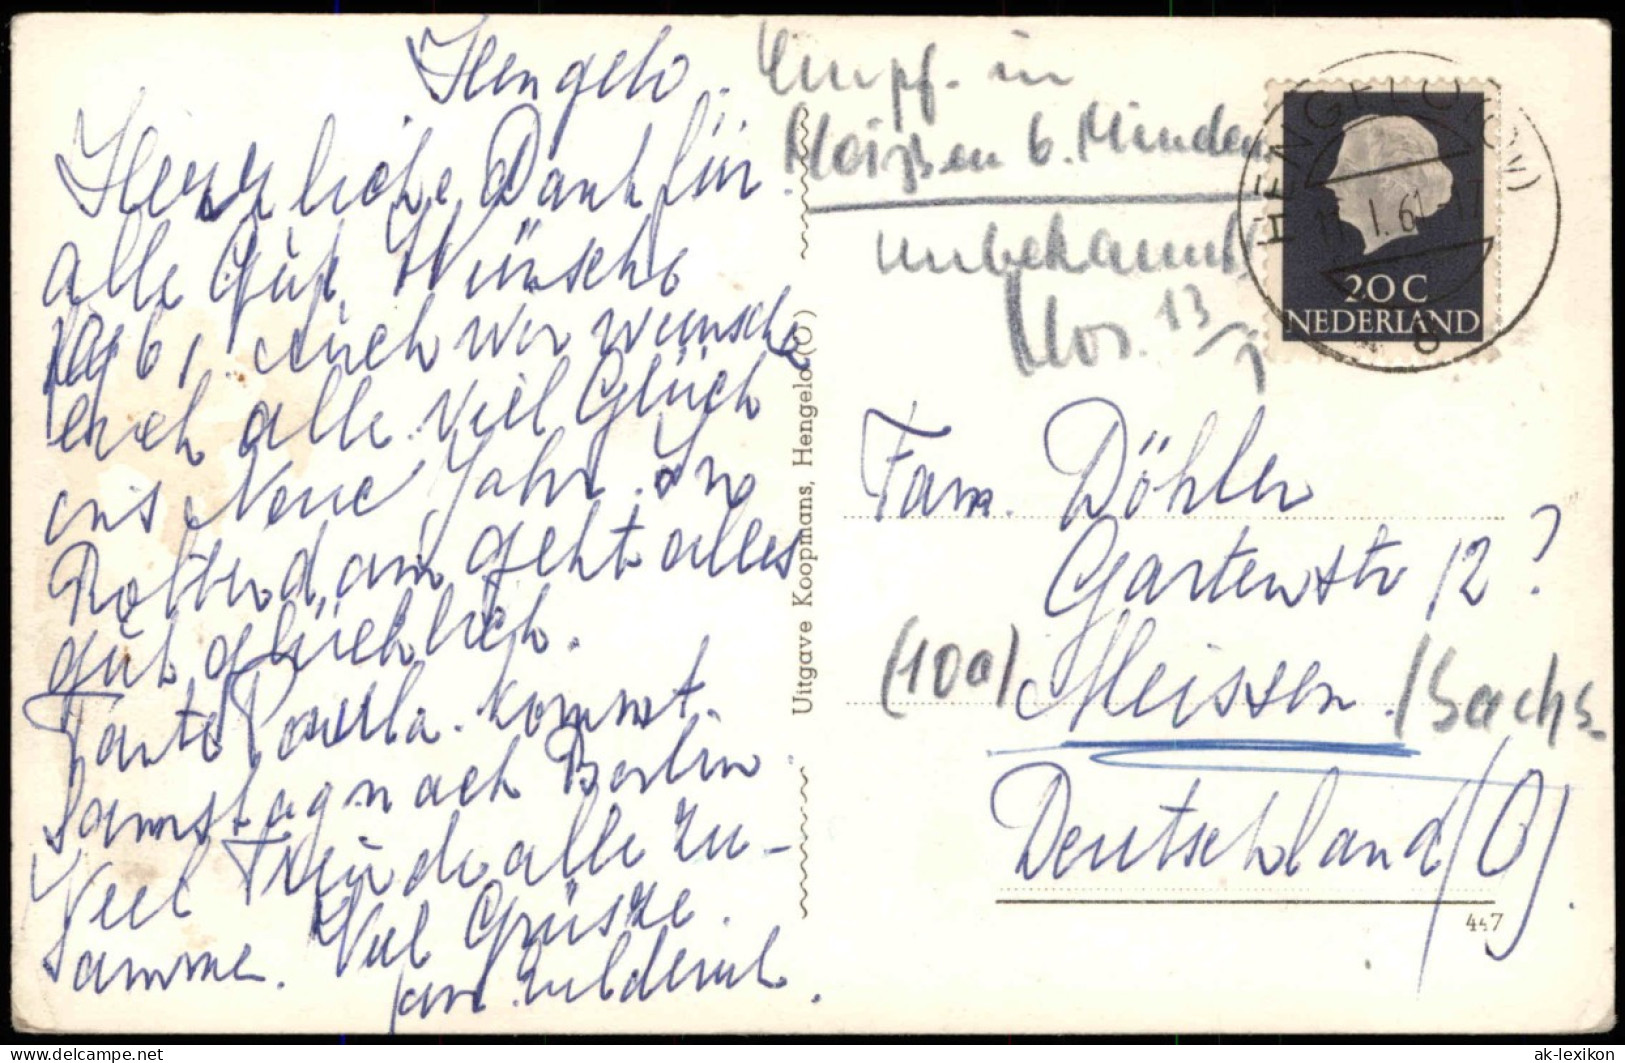 Hengelo.
Herzliche Dank für
alle gut. Wünsche
1961, Auch wir wünsche
euch alle viel Glück
ins Neue Jahr. In
Rotterdam geht alles
gut glücklich.
Tante Paula kommt
Samstag nach Berlin.
Viel Freude alle zu-
samme. Viel Grüsze.
Jan
Uitgave Koopmans, Hengelo (O)
Empf. in
Meiszen b. Minden
unbekannt
13/1
HENGELO (OV)
11.I.61-17
20 C
NEDERLAND
Fam. Döhler
Gartenstr 12?
(10a) Meissen /Sachs
Deutschland (O).
447
www.delcampe.net
ak-lexikon